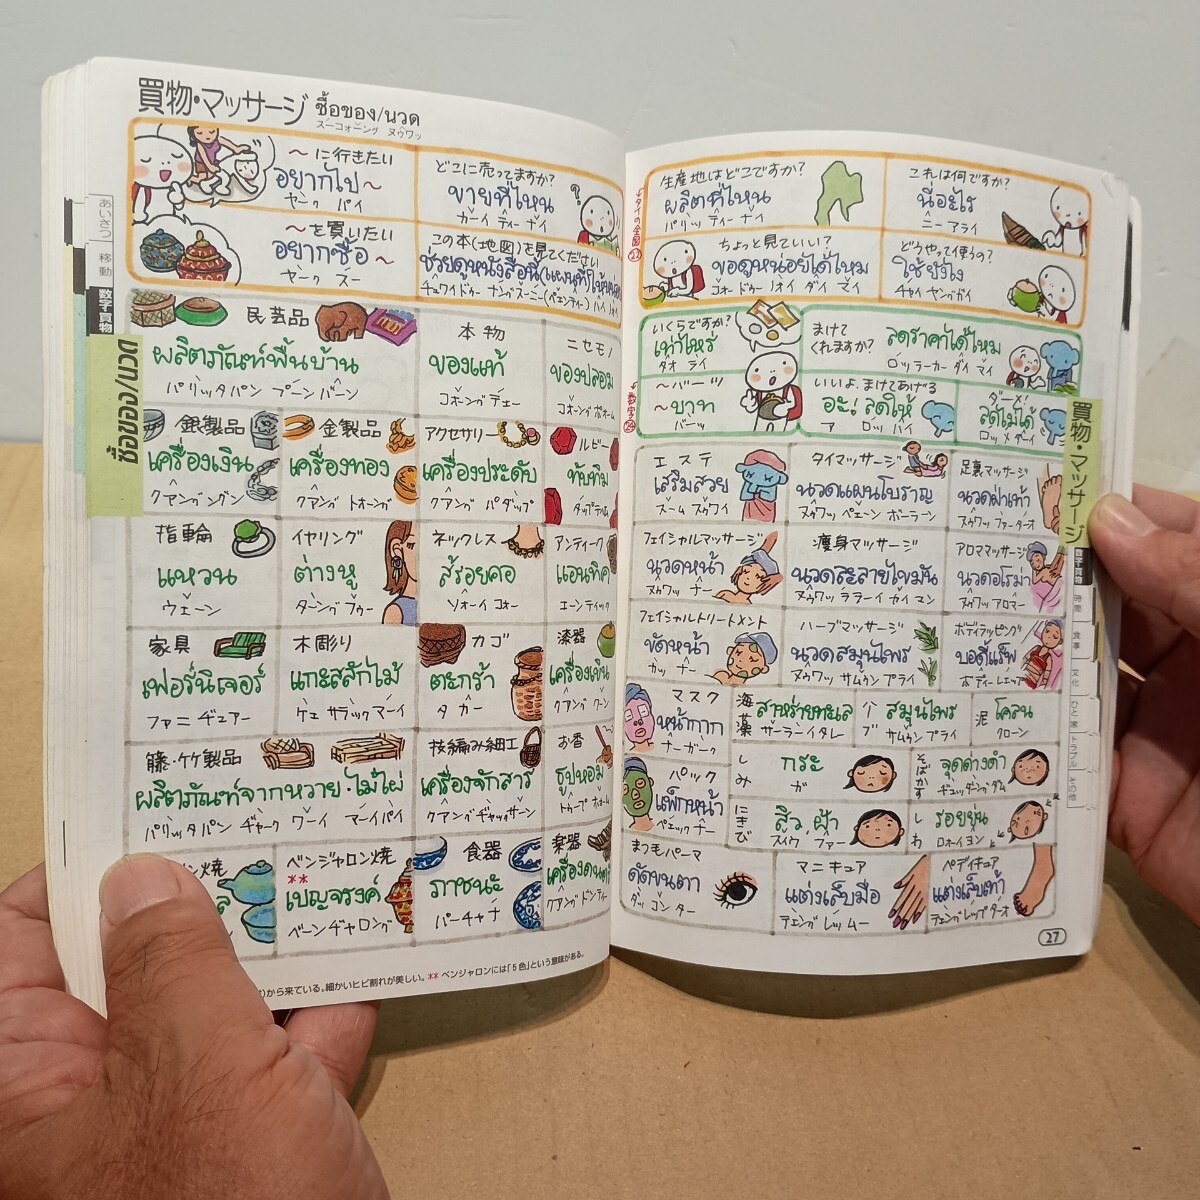 買物・マッサージ ซื้อของ/นวด
スーコォーング ヌゥワッ
〜に行きたい
อยากไป〜
ヤーク パイ
どこに売ってますか?
ขายที่ไหน
カーイ ティー ナイ
〜を買いたい
อยากซื้อ〜
ヤーク スー
この本(地図)を見てください
ช่วยดูหนังสือนี้(แผนที่)
あいさつ
移動
数字買物
ซื้อของ/นวด
民芸品
ผลิตภัณฑ์พื้นบ้าน
パリッタパン プーン バーン
本物
ของแท้
コォーング テェー
ニセモノ
ของปลอม
コォーング ポォーム
銀製品
เครื่องเงิน
クアング ングン
金製品
เครื่องทอง
クアング トォーング
アクセサリー
เครื่องประดับ
クアング パダップ
ルビー
ทับทิม
タップティム
指輪
แหวน
ウェーン
イヤリング
ต่างหู
ターング フゥー
ネックレス
สร้อยคอ
ソォーイ コォー
アンティーク
แอนทิค
エーンティック
家具
เฟอร์นิเจอร์
ファニヂュアー
木彫り
แกะสลักไม้
ゲェ サラック マーイ
カゴ
ตะกร้า
タ カー
漆器
เครื่องเขิน
クアング クーン
籐・竹製品
ผลิตภัณฑ์จากหวาย・ไม้ไผ่
パリッタパン ヂャーク ワーイ マーイパイ
枝編み細工
เครื่องจักสาร
クアング ヂャックサーン
お香
ธูปหอม
トゥープ ホォーム
ン焼
ล
ベンジャロン焼
**
เบญจรงค์
ベーンヂャロング
食器
ภาชนะ
パーチャナ
楽器
เครื่องดนตรี
クアング ドンティー
から来ている。細かいヒビ割れが美しい。** ベンジャロンには「5色」という意味がある。
生産地はどこですか?
ผลิตที่ไหน
パリッ ティー ナイ
タイの全図 22
これは何ですか?
นี่อะไร
ニー アライ
ちょっと見ていい?
ขอดูหน่อยได้ไหม
コォー ドゥー ノォイ ダイ マイ
どうやって使うの?
ใช้ยังไง
チャイ ヤングガイ
いくらですか?
เท่าไหร่
タオ ライ
〜バーツ
〜บาท
バーツ
数字 24
まけてくれますか?
ลดราคาได้ไหม
ロッラーカー ダイ マイ
いいよ、まけてあげる
อะ! ลดให้
ア ロッ ハイ
ダーメ!
ลดไม่ได้
ロッ メ ダーイ
エステ
เสริมสวย
スーム スゥワイ
タイマッサージ
นวดแผนโบราญ
ヌゥワッ ペェーン ボーラーン
足裏マッサージ
นวดฝ่าเท้า
ヌゥワッ ファーターオ
フェイシャルマッサージ
นวดหน้า
ヌゥワッ ナー
痩身マッサージ
นวดสะลายไขมัน
ヌゥワッ ララーイ カイ マン
アロママッサージ
นวดอโรม่า
ヌゥワッ アロマー
フェイシャルトリートメント
ขัดหน้า
カッ ナー
ハーブマッサージ
นวดสมุนไพร
ヌゥワッ サムゥン プライ
ボディラッピング
บอดี้แร็พ
ボディー レェップ
マスク
หน้ากาก
ナーガーク
海藻
สาหร่ายทะเล
サーラーイ タレ
ハーブ
สมุนไพร
サムゥン プライ
泥
โคลน
クローン
パック
แพ็กหน้า
ペェック ナー
しみ
กระ
ガ
そばかす
จุดด่างดำ
ヂュッダーング ダム
にきび
สิว,ฝ้า
スィウ ファー
しわ
รอยย่น
ロォーイ ヨン
まつ毛パーマ
ดัดขนตา
ダッ コン ター
マニキュア
แต่งเล็บมือ
テェング レッ ムー
ペディキュア
แต่งเล็บเท้า
テェング レップ ターオ
買物・マッサージ
数字買物
時間
食事
文化
ひと 家
トラブル
その他
27